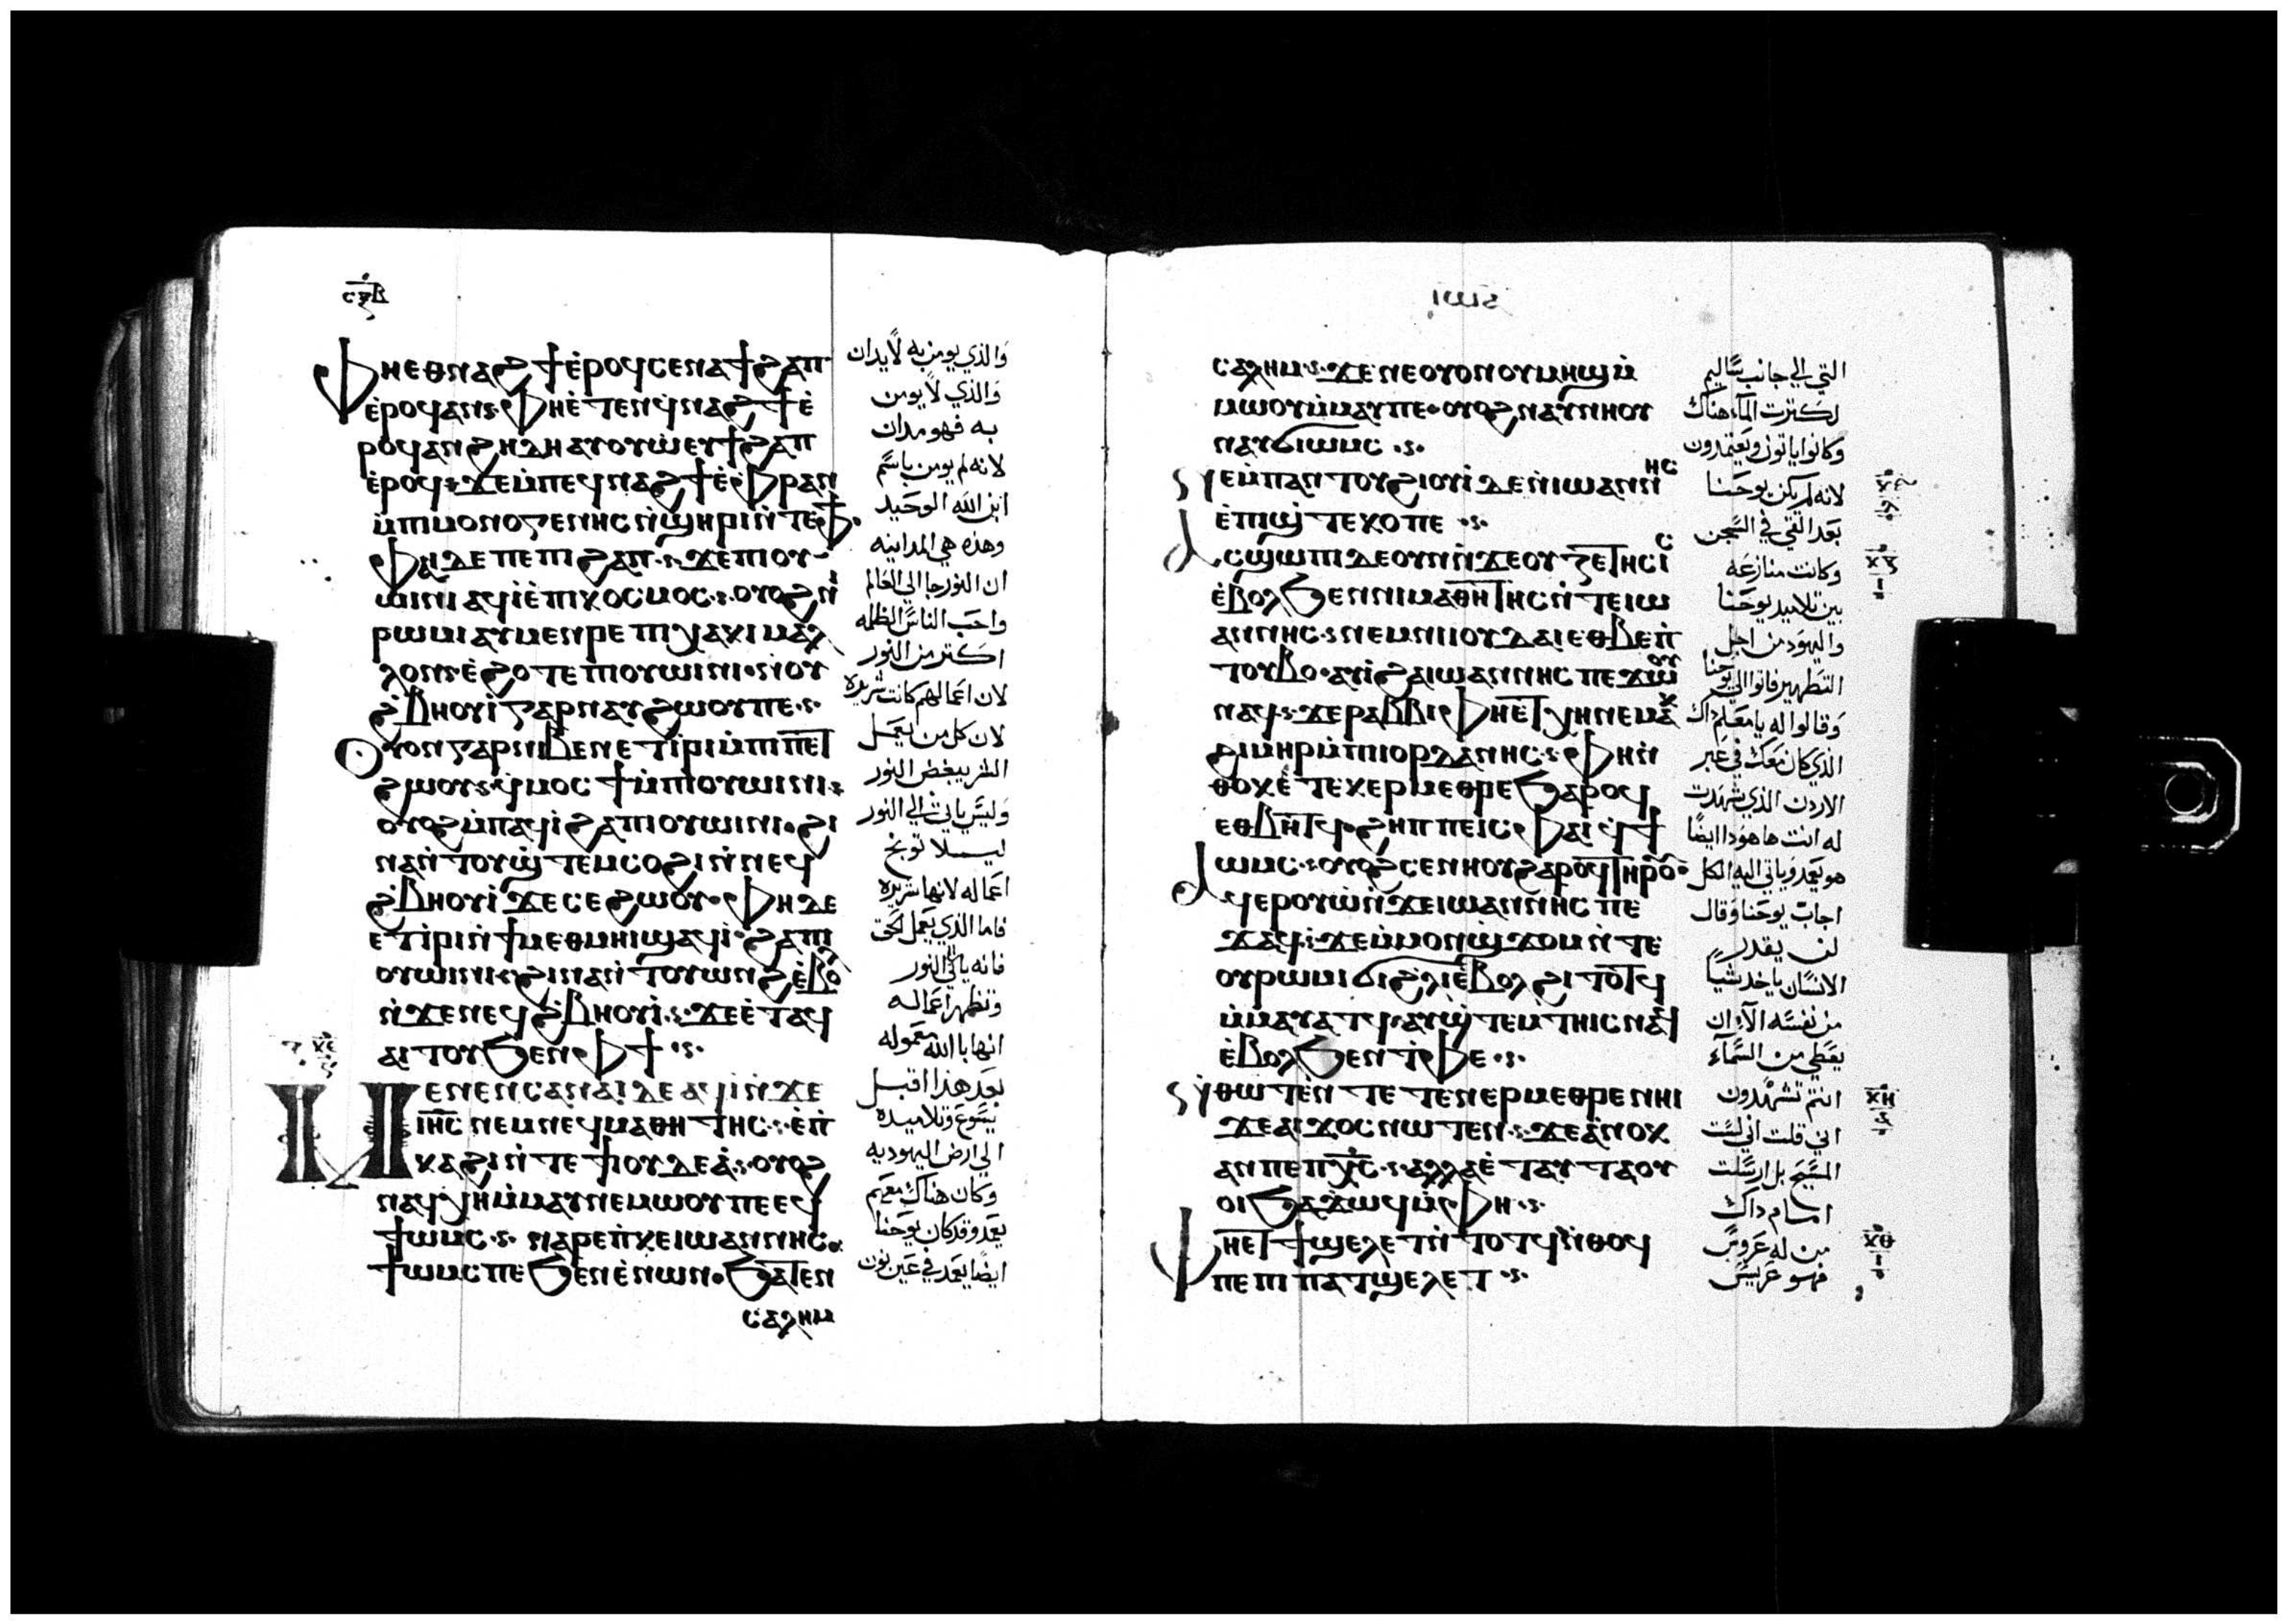 ⲥϥⲃ
Ⲫⲏⲉⲑⲛⲁϩϯⲉ̇ⲣⲟϥⲥⲉⲛⲁϯϩⲁⲡ
ⲉ̇ⲣⲟϥⲁⲛ·Ⲫⲏⲉ̇ⲧⲉⲛϥ̇ⲛⲁϩϯⲉ̇
ⲣⲟϥⲁⲛϩⲏⲇⲏⲁⲩⲟⲩⲱⲉⲩϯϩⲁⲡ
ⲉ̇ⲣⲟϥ·ϫⲉⲙ̇ⲡⲉϥⲛⲁϩϯⲉ̇ⲫⲣⲁⲛ
ⲙ̇ⲡⲓⲙⲟⲛⲟⲅⲉⲛⲏⲥⲛ̇ϣⲏⲣⲓⲛ̇ⲧⲉⲫϯ·
Ⲫⲁⲓⲇⲉⲡⲉⲡⲓϩⲁⲡ·ϫⲉⲡⲓⲟⲩ
ⲱⲓⲛⲓⲁϥⲓ̇ⲉ̇ⲡⲓⲕⲟⲥⲙⲟⲥ·ⲟⲩⲟϩⲛ̇
ⲣⲱⲙⲓⲁⲩⲙⲉⲛⲣⲉⲡⲓⲭⲁⲕⲓⲙⲁⲗ
ⲗⲟⲛ·ⲉ̇ϩⲟⲧⲉⲡⲓⲟⲩⲱⲓⲛⲓ·ⲛⲓⲟⲩ
ϩ̇ⲃⲏⲟⲩⲓ̇ⲅⲁⲣⲛⲁⲩϩⲱⲟⲩⲡⲉ·
Ⲟⲩⲟⲛⲅⲁⲣⲛⲓⲃⲉⲛⲉⲧⲓ̇ⲣⲓⲙ̇ⲡⲓⲡⲉⲧ
ϩⲱⲟⲩ·ϥ̇ⲙⲟⲥϯⲙ̇ⲡⲓⲟⲩⲱⲓⲛⲓ·
ⲟⲩⲟϩⲙ̇ⲡⲁϥⲓ̇ϩⲁⲡⲓⲟⲩⲱⲓⲛⲓ·ϩⲓ
ⲛⲁⲛ̇ⲧⲟⲩϣ̇ⲧⲉⲙⲥⲟϩⲓⲛ̇ⲛⲉϥ
ϩ̇ⲃⲏⲟⲩⲓ̇ϫⲉⲥⲉϩⲱⲟⲩ·Ⲫⲏⲇⲉ
ⲉⲧⲓ̇ⲣⲓⲛ̇ϯⲙⲉⲑⲙⲏⲓϣⲁϥⲓ̇·ϩⲁⲡⲓ
ⲟⲩⲱⲓⲛⲓ·ϩⲓⲛⲁⲛ̇ⲧⲟⲩⲱⲛϩⲉ̇ⲃⲟⲗ
ⲛ̇ϫⲉⲛⲉϥϩ̇ⲃⲏⲟⲩⲓ̇·ϫⲉⲉ̇ⲧⲁϥ
ⲁⲓⲧⲟⲩϧⲉⲛⲫϯ·
Ⲙⲉⲛⲉⲛⲥⲁⲛⲁⲓⲇⲉⲁϥⲓ̇ⲛ̇ϫⲉ
ⲓⲏⲥⲛⲉⲙⲛⲉϥⲙⲁⲑⲏⲧⲏⲥ·ⲉ̇ⲡ̇
ⲕⲁϩⲓⲛ̇ⲧⲉϯⲓⲟⲩⲇⲉⲁ̇·ⲟⲩⲟϩ
ⲛⲁϥⲭⲏⲙ̇ⲙⲁⲩⲛⲉⲙⲱⲟⲩⲡⲉⲉϥ
ϯⲱⲙⲥ·ⲛⲁⲣⲉⲡ̇ⲕⲉⲓⲱⲁⲛⲛⲏⲥ·
ϯⲱⲙⲥⲡⲉϧⲉⲛⲉ̇ⲛⲱⲛ·ϧⲁⲧⲉⲛ
ⲥⲁⲗⲏⲙ
والذي يومن به لا يدان
والذي لا يومن
به فهو مدان
لانه لم يومن باسم
ابن الله الوحيد
وهذه هي المداينه
ان النور جا الي العالم
واحب الناس الظلمه
اكتر من النور
لان اعمالهم كانت شريره
لان كل من يعمل
الشر يبغض النور
وليس ياتي الي النور
ليلا توبخ
اعماله لانها شريره
فاما الذي يعمل الحق
فانه ياتي النور
وتظهر اعماله
انها بالله معموله
بعد هذا اقبل
يسوع وتلاميده
الي ارض اليهوديه
وكان هناك معهم
يعمد وقد كان يوحنا
ايضا يعمد في عين نون
ⲥⲁⲗⲏⲙ·ϫⲉⲛⲉⲟⲩⲟⲛⲟⲩⲙⲏϣⲙ̇
ⲙⲱⲟⲩⲙ̇ⲙⲁⲩⲡⲉ·ⲟⲩⲟϩⲛⲁⲩⲛⲏⲟⲩ
ⲛⲁⲩϭⲓⲱⲙⲥ·
ⲛⲉⲙ̇ⲡⲁⲛⲧⲟⲩϩⲓⲟⲩⲓ̇ⲇⲉⲛ̇ⲓⲱⲁⲛⲛⲏⲥ
ⲉ̇ⲡⲓϣ̇ⲧⲉⲕⲟⲡⲉ·
Ⲁⲥϣⲱⲡⲓⲇⲉⲟⲩⲛⲛ̇ϫⲉⲟⲩⲍⲉⲧⲏⲥⲓⲥ
ⲉ̇ⲃⲟⲗϧⲉⲛⲛⲓⲙⲁⲑⲏⲧⲏⲥⲛ̇ⲧⲉⲓⲱ
ⲁⲛⲛⲏⲥ·ⲛⲉⲙⲛⲓⲓⲟⲩⲇⲁⲓⲉⲑⲃⲉⲡ̇
ⲧⲟⲩⲃⲟ·ⲁⲩⲓ̇ϩⲁⲓⲱⲁⲛⲛⲏⲥⲡⲉϫⲱⲟⲩ
ⲛⲁϥ·ϫⲉⲣⲁⲃⲃⲓ·Ⲫⲏⲉⲧⲭⲏⲛⲉⲙⲁⲕ
ϩⲓⲙⲏⲣⲙ̇ⲡⲓⲓⲟⲣⲇⲁⲛⲏⲥ·Ⲫⲏⲛ̇
ⲑⲟⲕⲉ̇ⲧⲉⲕⲉⲣⲙⲉⲑⲣⲉϧⲁⲣⲟϥ
ⲉⲑⲃⲏⲧϥ·ϩⲏⲡⲡⲉⲓⲥ·Ⲫⲁⲓϥ̇ϯ
ⲱⲙⲥ·ⲟⲩⲟϩⲥⲉⲛⲏⲟⲩϩⲁⲣⲟϥⲧⲏⲣⲟⲩ·
Ⲁϥⲉⲣⲟⲩⲱ̇ⲛ̇ϫⲉⲓⲱⲁⲛⲛⲏⲥⲡⲉ
ϫⲁϥ·ϫⲉⲙ̇ⲙⲟⲛϣ̇ϫⲟⲙⲛ̇ⲧⲉ
ⲟⲩⲣⲱⲙⲓϭⲓϩ̇ⲗⲓⲉ̇ⲃⲟⲗϩⲓⲧⲟⲧϥ
ⲙ̇ⲙⲁⲩⲁⲧϥ·ⲁⲩϣ̇ⲧⲉⲙⲧⲏⲓⲥⲛⲁϥ
ⲉ̇ⲃⲟⲗϧⲉⲛⲧ̇ⲫⲉ·
ⲛ̇ⲑⲱⲧⲉⲛ̇ⲧⲉⲧⲉⲛⲉⲣⲙⲉⲑⲣⲉⲛⲏⲓ
ϫⲉⲁⲓϫⲟⲥⲛⲱⲧⲉⲛ·ϫⲉⲁ̇ⲛⲟⲕ
ⲁⲛⲡⲉⲡⲭⲥ·ⲁⲗⲗⲁⲉ̇ⲧⲁⲩⲧⲁⲟⲩ
ⲟⲓϧⲁϫⲱϥⲙ̇ⲫⲏ·
Ⲫⲏⲉⲧϯϣⲉⲗⲉⲧⲛ̇ⲧⲟⲧϥⲛ̇ⲑⲟϥ
ⲡⲉⲡⲓⲡⲁⲧϣⲉⲗⲉⲧ·
التي الي جانب ساليم
لكترت الماء هناك
وكانوا ياتون ويعتمدون
لانه لم يكن يوحنا
بعد القي في السجن
وكانت منازعه
بين تلاميد يوحنا
واليهود من اجل
التطهير فاتوا الي يوحنا
وقالوا له يا معلم داك
الذي كان معك في عبر
الاردن الذي شهدت
له انت ها هودا ايضا
هو يعمد وياتي اليه الكل
اجاب يوحنا وقال
لن يقدر
الانسان ياخد شيا
من نفسه الا ان
يعطي من السماء
انتم تشهدون
اني قلت اني لست
المسيح بل ارسلت
امام داك
من له عروس
فهو عريس
ⲕⲏ
ⲕⲑ